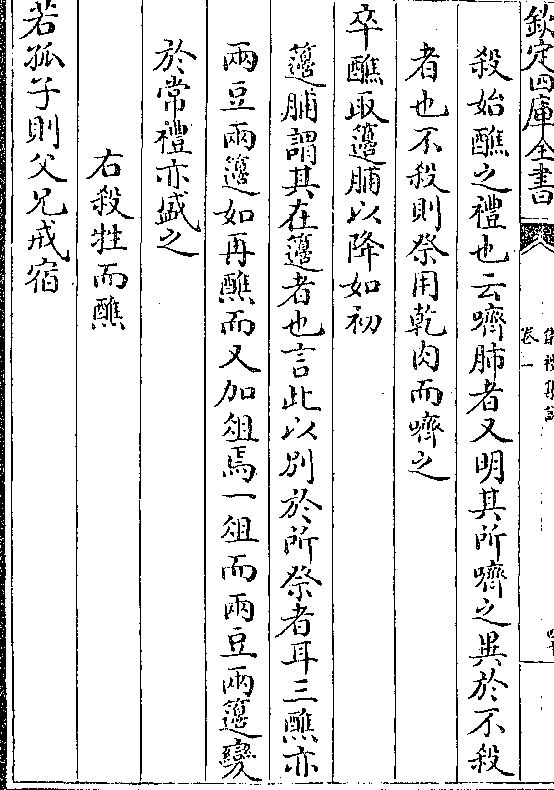 欽定四庫全書
儀禮集說
卷一
殺始醮之禮也云嚌肺者又明其所嚌之異於不殺
者也不殺則祭用乾肉而嚌之
卒醮取籩脯以降如初
籩脯謂其在籩者也言此以別於所祭者耳三醮亦
兩豆兩籩如再醮而又加俎焉一俎而兩豆兩籩變
於常禮亦盛之
右殺牲而醮
若孤子則父兄戒宿